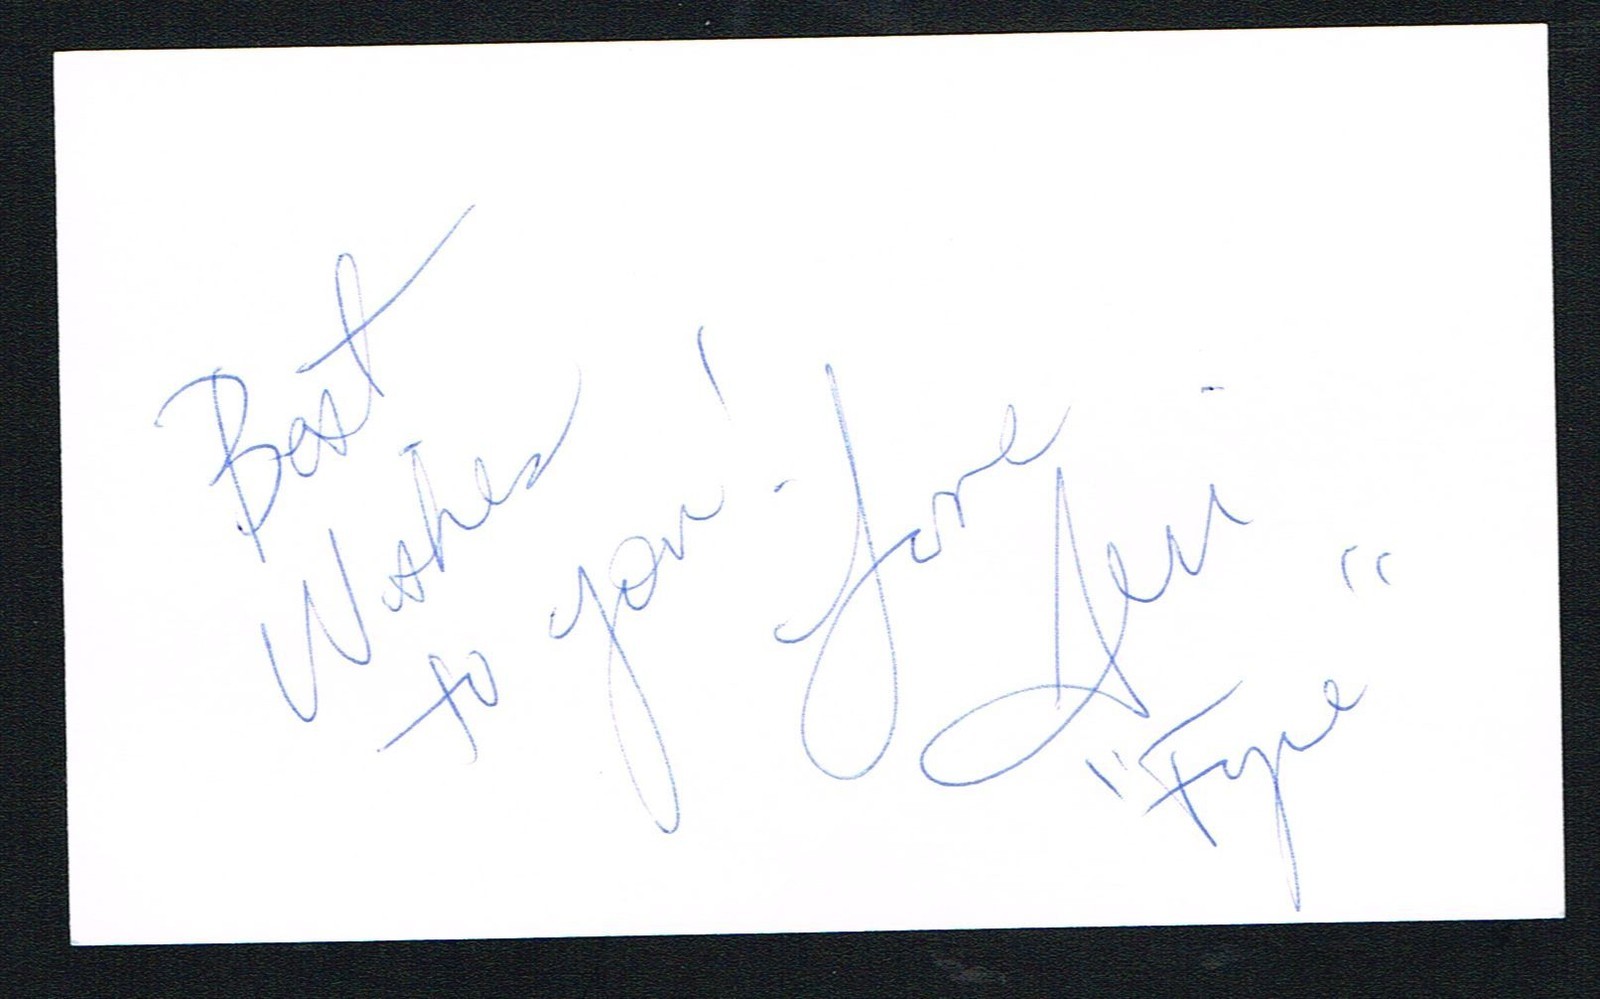 Best
Wishes
to you! - Love
"Fyne"